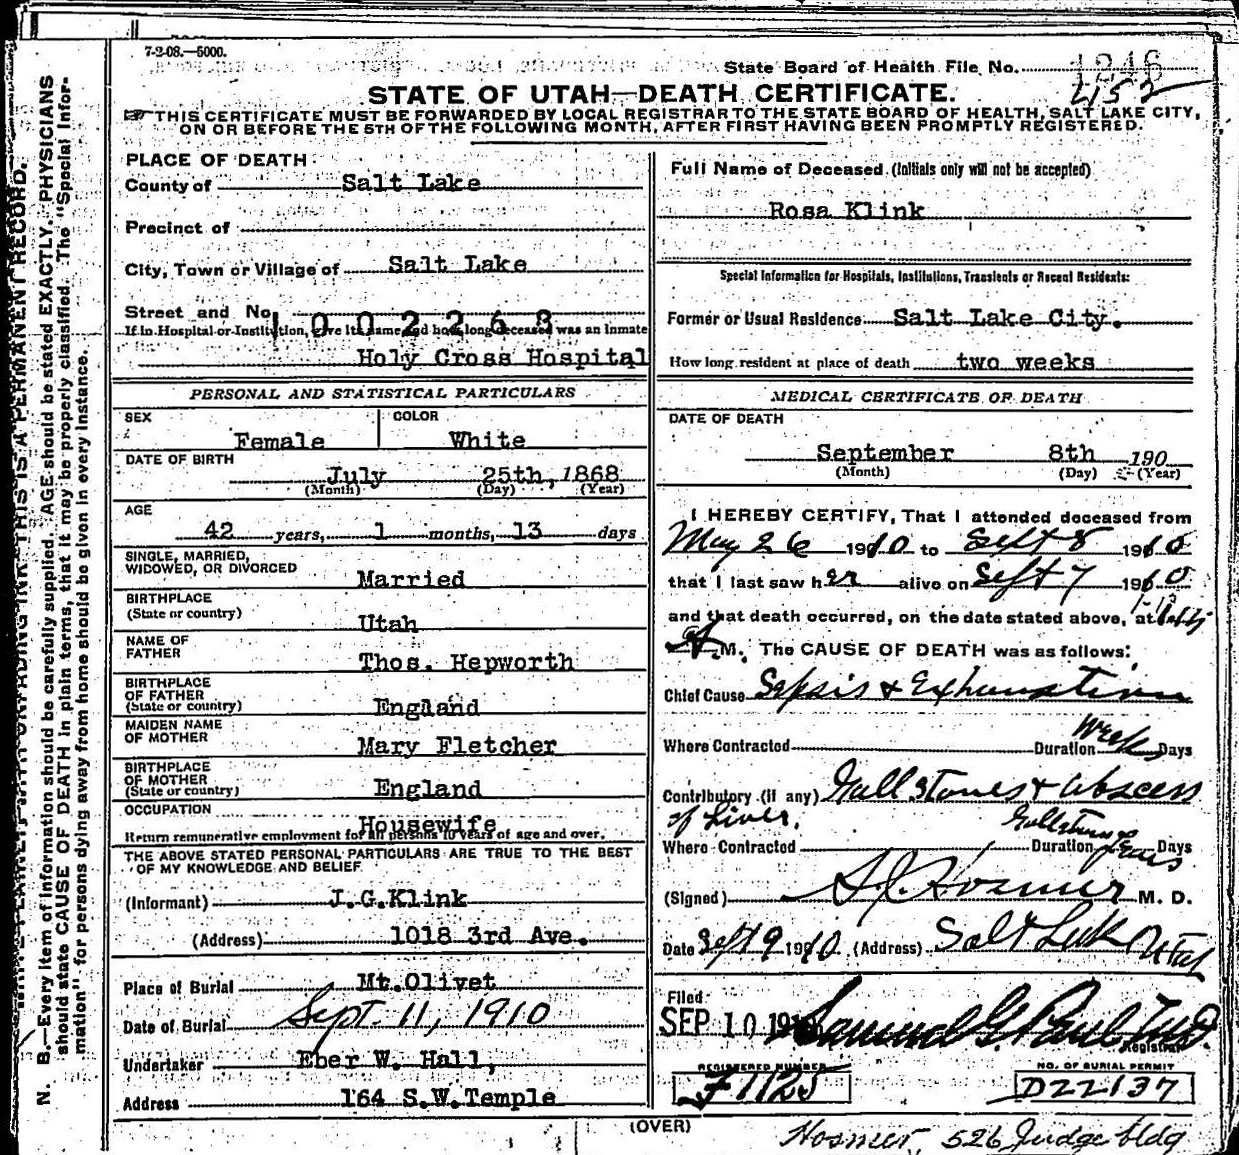 7-2-08.—5000.
State Board of Health File No. 1246
452
STATE OF UTAH—DEATH CERTIFICATE.
THIS CERTIFICATE MUST BE FORWARDED BY LOCAL REGISTRAR TO THE STATE BOARD OF HEALTH, SALT LAKE CITY,
ON OR BEFORE THE 5TH OF THE FOLLOWING MONTH, AFTER FIRST HAVING BEEN PROMPTLY REGISTERED.
PLACE OF DEATH
County of Salt Lake
Precinct of
City, Town or Village of Salt Lake
Street and No.
1002268
If in Hospital or Institution, give its name and how long deceased was an inmate
Holy Cross Hospital
PERSONAL AND STATISTICAL PARTICULARS
SEX Female COLOR White
DATE OF BIRTH
July 25th, 1868
(Month) (Day) (Year)
AGE
42 years, 1 months, 13 days
SINGLE, MARRIED,
WIDOWED, OR DIVORCED Married
BIRTHPLACE
(State or country) Utah
NAME OF
FATHER Thos. Hepworth
BIRTHPLACE
OF FATHER
(State or country) England
MAIDEN NAME
OF MOTHER Mary Fletcher
BIRTHPLACE
OF MOTHER
(State or country) England
OCCUPATION
Housewife
Return remunerative employment for all persons 10 years of age and over.
THE ABOVE STATED PERSONAL PARTICULARS ARE TRUE TO THE BEST
OF MY KNOWLEDGE AND BELIEF
(Informant) J.G.Klink
(Address) 1018 3rd Ave.
Place of Burial Mt.Olivet
Date of Burial Sept. 11, 1910
Undertaker Eber W. Hall,
Address 164 S.W.Temple
Full Name of Deceased (Initials only will not be accepted)
Rosa Klink
Special Information for Hospitals, Institutions, Transients or Recent Residents:
Former or Usual Residence Salt Lake City.
How long resident at place of death two weeks
MEDICAL CERTIFICATE OF DEATH
DATE OF DEATH
September 8th 190
(Month) (Day) (Year)
I HEREBY CERTIFY, That I attended deceased from
May 26 1910 to Sept 8 1910
that I last saw her alive on Sept 7 1910
and that death occurred, on the date stated above, at
M. The CAUSE OF DEATH was as follows:
Chief Cause Sepsis & Exhaustion
Where Contracted Duration Weeks Days
Contributory (if any) Gall stones & abscess
of Liver. Gallstones
Where Contracted Duration years Days
(Signed) Hosmer M. D.
Date Sept 9 1910. (Address) Salt Lake Utah
Filed
SEP 10 1910 Samuel G. Paul M.D.
Registrar
REGISTERED NUMBER
F1125
NO. OF BURIAL PERMIT
D22137
(OVER)
Hosmer, 526 Judge bldg
N. B.—Every item of information should be carefully supplied. AGE should be stated EXACTLY. PHYSICIANS
should state CAUSE OF DEATH in plain terms, that it may be properly classified. The "Special Infor-
mation" for persons dying away from home should be given in every instance.
THIS IS A PERMANENT RECORD.